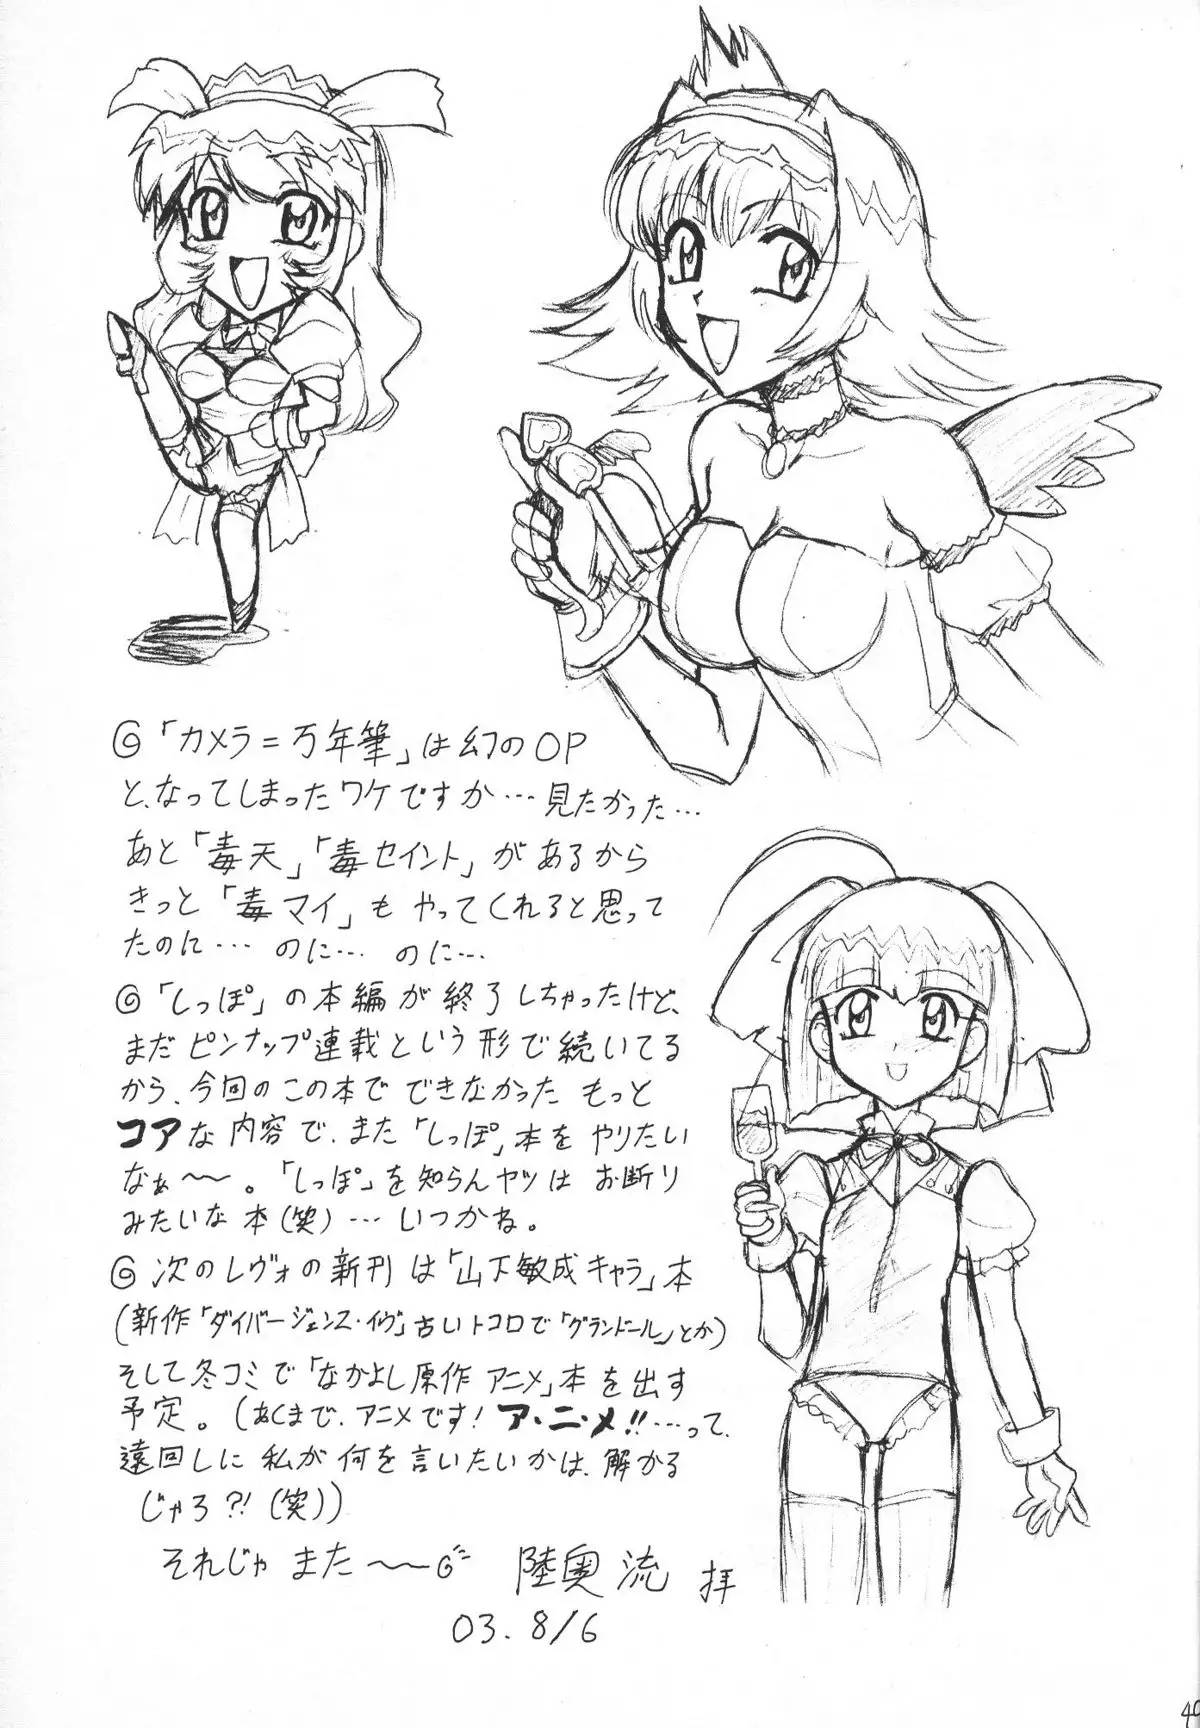 ◎「カメラ=万年筆」は幻のOP
と、なってしまったワケですか…見たかった…
あと「毒天」「毒セイント」があるから
きっと「毒マイ」もやってくれると思って
たのに… のに… のに…
◎「しっぽ」の本編が終了しちゃったけど、
まだピンナップ連載という形で続いてる
から、今回のこの本でできなかった もっと
コアな内容で、また「しっぽ」本をやりたい
なぁ〜〜。「しっぽ」を知らんヤツは お断り
みたいな 本(笑)…いつかね。
◎ 次のレヴォの新刊は「山下敏成キャラ」本
(新作「ダイバージェンス・イヴ」古いトコロで「グランドール」とか)
そして冬コミで「なかよし原作アニメ」本を出す
予定。(あくまで、アニメです!ア・ニ・メ!!…って、
遠回しに私が何を言いたいかは、解かる
じゃろ?!(笑))
それじゃ また〜〜
陸奥 流 拝
03. 8/6